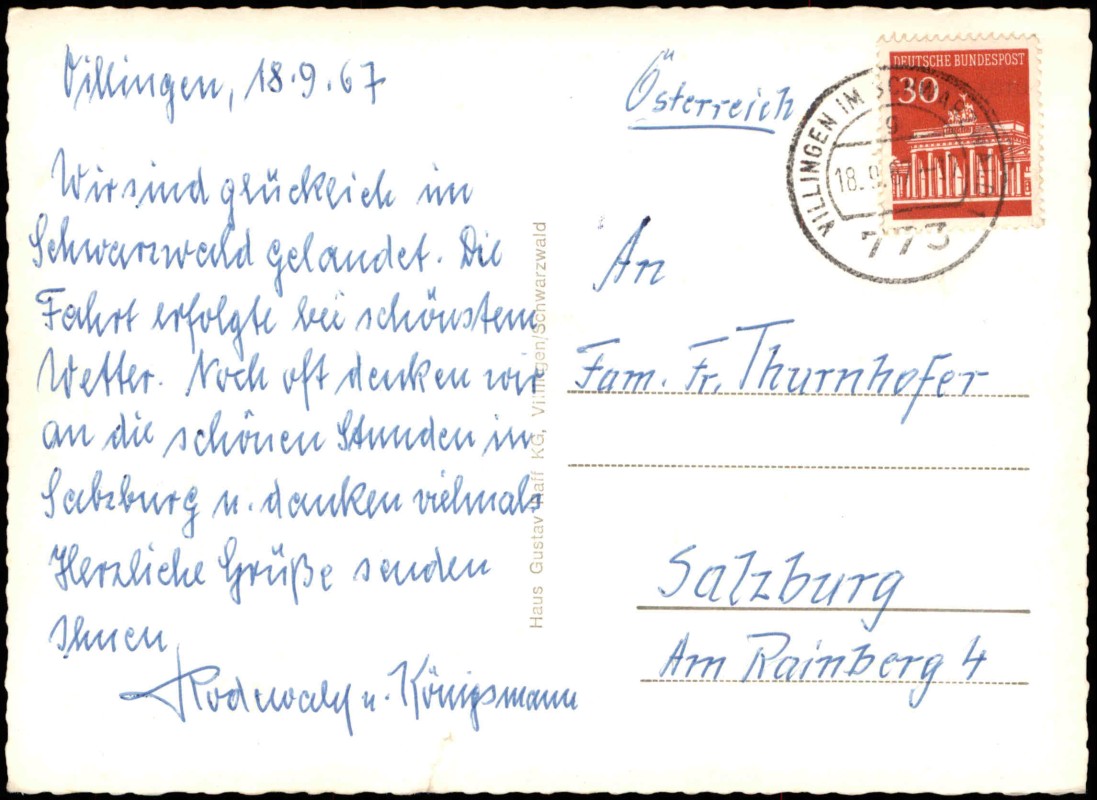 Villingen, 18.9.67
Wir sind glücklich im
Schwarzwald gelandet. Die
Fahrt erfolgte bei schönstem
Wetter. Noch oft denken wir
an die schönen Stunden in
Salzburg u. danken vielmals
Herzliche Grüße senden
Ihnen
Rodewald u. Königsmann
Haus Gustav Raff KG, Villingen/Schwarzwald
Österreich
DEUTSCHE BUNDESPOST
30
VILLINGEN IM SCHWARZWALD
g
18.9.
773
An
Fam. Fr. Thurnhofer
Salzburg
Am Rainberg 4